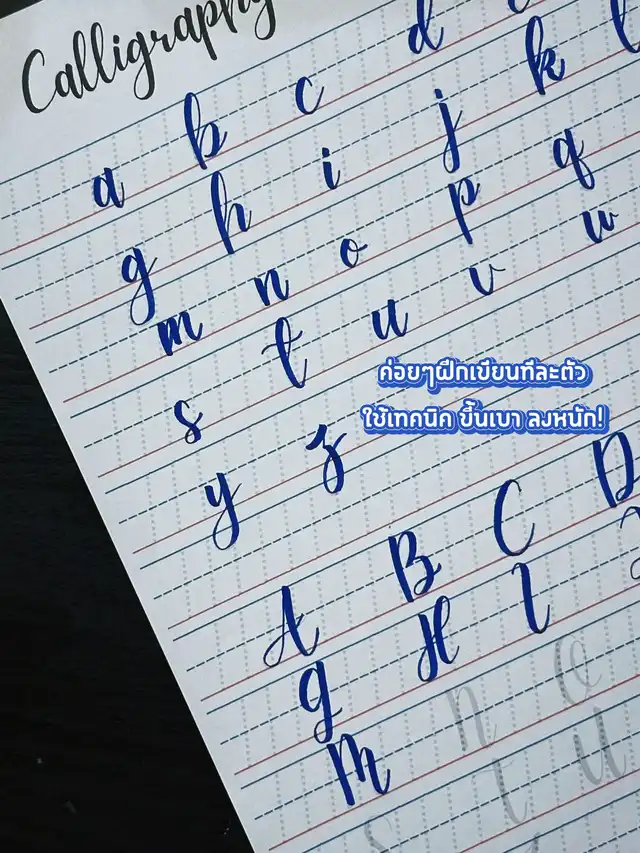 Calligraphy
a b c d
g h i j k l
m n o p q
s t u v w
y z
ค่อยๆฝึกเขียนทีละตัว
ใช้เทคนิค ขึ้นเบา ลงหนัก!
A B C D
G H I
M n o
t u